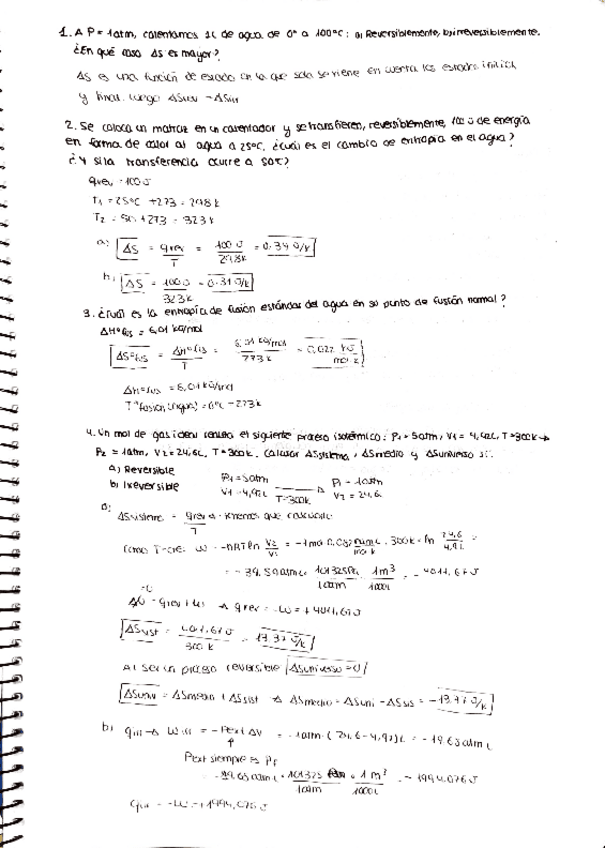 1. A P = 1atm, calentamos 1L de agua de 0° a 100°C: a) Reversiblemente, b) irreversiblemente.
¿En qué caso ΔS es mayor?
ΔS es una función de estado en la que solo se tiene en cuenta los estados inicial
y final. Luego
2. Se coloca un matraz en un calentador y se transfieren, reversiblemente, 100 J de energía
en forma de calor al agua a 25°C, ¿cuál es el cambio de entropía en el agua?
¿Y si la transferencia ocurre a 50°C?
qrev = 100 J
T1 = 25°C + 273 = 298 K
T2 = 50 + 273 = 323 K
a) ΔS = qrev / T = 100 J / 298 K = 0,34 J/K
b) ΔS = 100 J / 323 K = 0,31 J/K
3. ¿Cuál es la entropía de fusión estándar del agua en su punto de fusión normal?
ΔH°fus = 6,01 kJ/mol
ΔS°fus = ΔH°fus / T = 6,01 kJ/mol / 273 K = 0,022 kJ / mol K
ΔH°fus = 6,01 kJ/mol
T° fusión (agua) = 0°C = 273 K
4. Un mol de gas ideal el siguiente proceso isotérmico: P1 = 5atm, V1 = 4,92L, T = 300K →
P2 = 1atm, V2 = 24,6L, T = 300K. Calcular ΔSsistema, ΔSmedio y ΔSuniverso si:
a) Reversible
b) Irreversible
P1 = 5atm
V1 = 4,92L
T = 300K
= 1atm
V2 = 24,6
a) ΔSsistema = qrev / T → tenemos que calcular
Como T = cte: W = -nRT ln V2/V1 = -1mol 0,082 atm L / mol K · 300K · ln 24,6 / 4,92 =
101325 Pa / 1atm · 1 m³ / 1000L = - 4011,67 J
= 0
ΔU = qrev + W → qrev = -W = + 4011,67 J
ΔSsist = 4011,67 J / 300 K = 13,37 J/K
Al ser un proceso reversible ΔSuniverso = 0
ΔSuniv = ΔSmedio + ΔSsist → ΔSmedio = ΔSuni - ΔSsis = -13,37 J/K
b) qirr → Wirr = -Pext ΔV = -1atm · (24,6 - 4,92)L = - 19,68 atm L
Pext siempre es Pf
101325 / 1atm · 1 m³ / 1000L = - 1994,076 J
qirr = -W = +1994,076 J